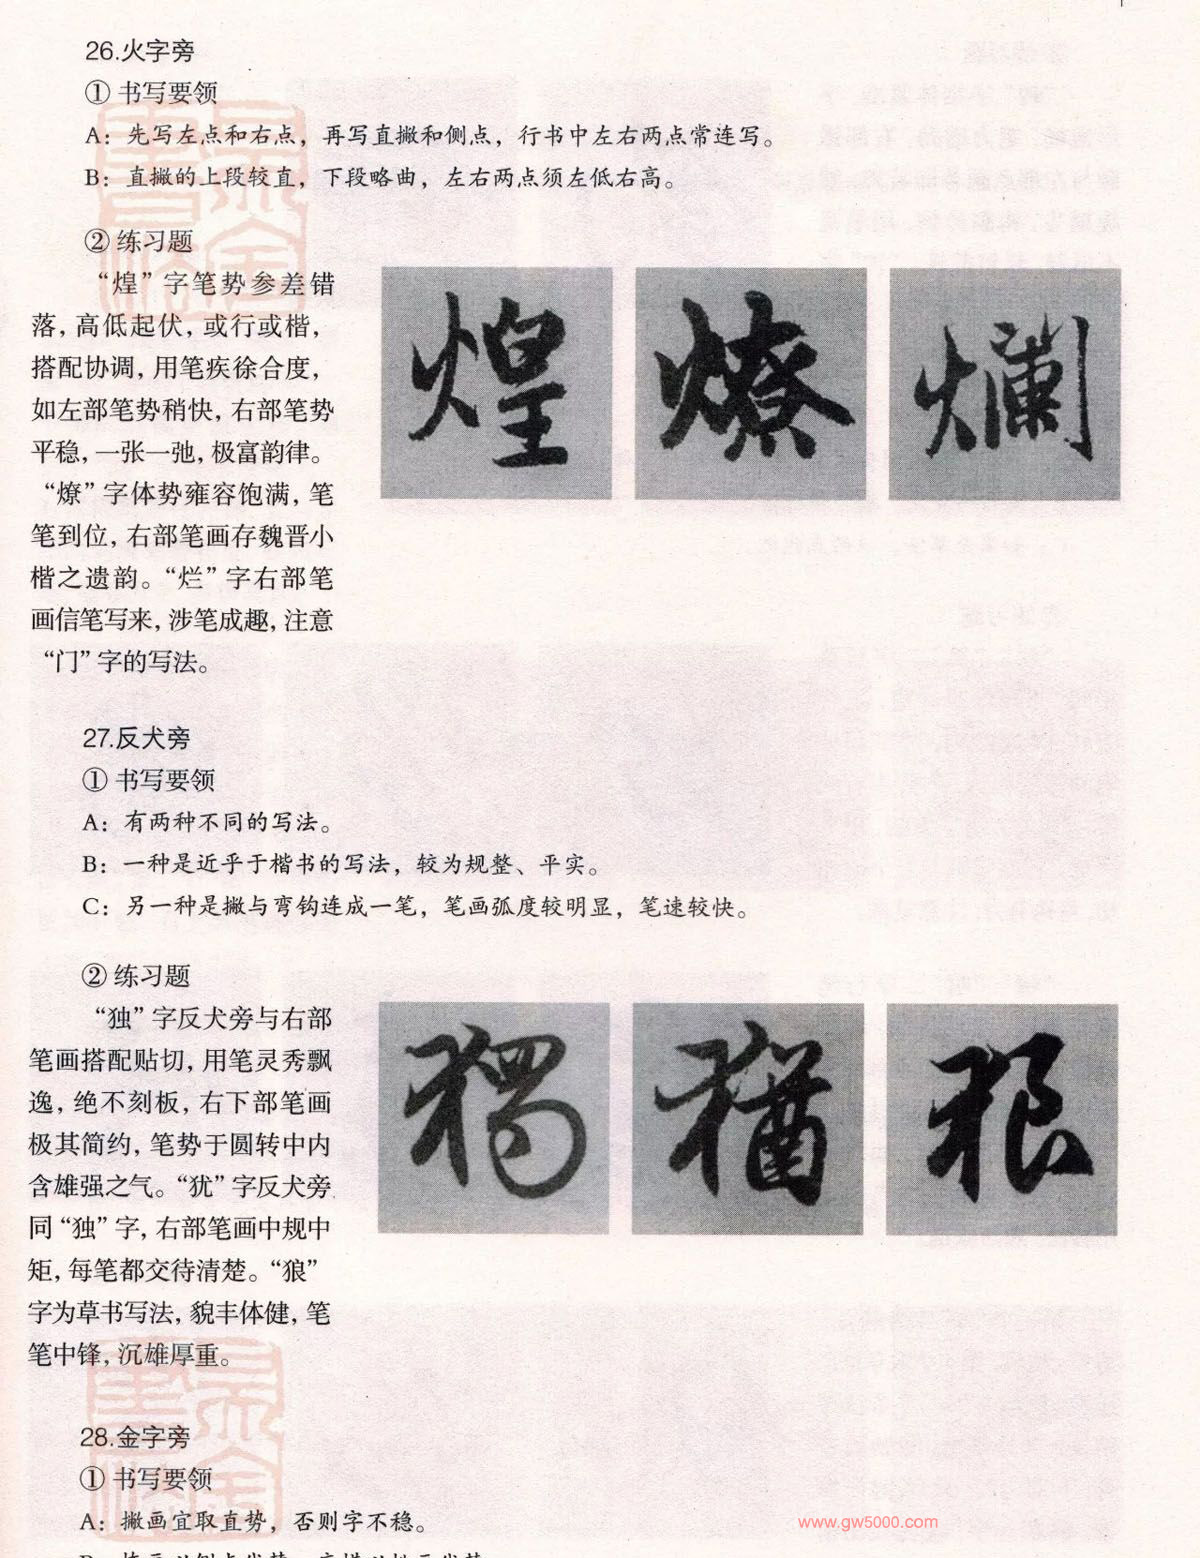 26.火字旁
① 书写要领
A：先写左点和右点，再写直撇和侧点，行书中左右两点常连写。
B：直撇的上段较直，下段略曲，左右两点须左低右高。
② 练习题
“煌”字笔势参差错
落，高低起伏，或行或楷，
搭配协调，用笔疾徐合度，
如左部笔势稍快，右部笔势
平稳，一张一弛，极富韵律。
“燎”字体势雍容饱满，笔
笔到位，右部笔画存魏晋小
楷之遗韵。“烂”字右部笔
画信笔写来，涉笔成趣，注意
“门”字的写法。
煌 燎 爛
27.反犬旁
① 书写要领
A：有两种不同的写法。
B：一种是近乎于楷书的写法，较为规整、平实。
C：另一种是撇与弯钩连成一笔，笔画弧度较明显，笔速较快。
② 练习题
“独”字反犬旁与右部
笔画搭配贴切，用笔灵秀飘
逸，绝不刻板，右下部笔画
极其简约，笔势于圆转中内
含雄强之气。“犹”字反犬旁
同“独”字，右部笔画中规中
矩，每笔都交待清楚。“狼”
字为草书写法，貌丰体健，笔
笔中锋，沉雄厚重。
獨 猶 狼
28.金字旁
① 书写要领
A：撇画宜取直势，否则字不稳。
www.gw5000.com